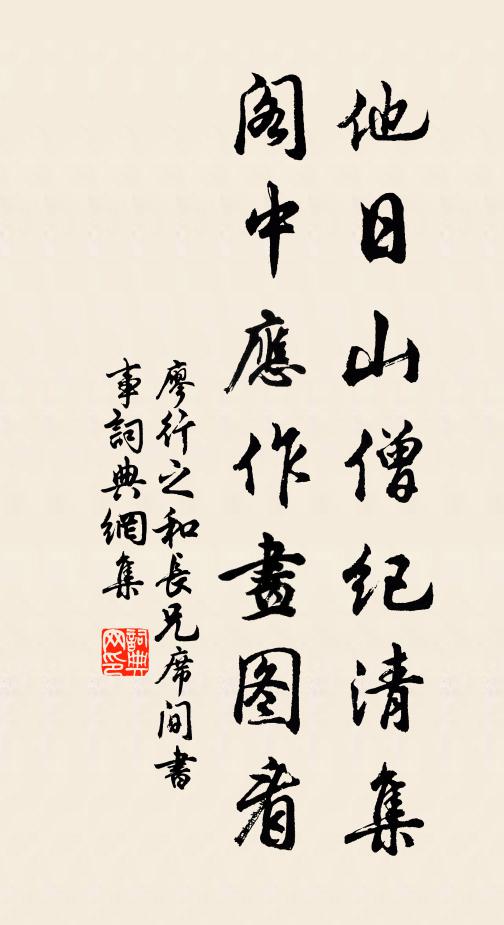 他日山僧纪清集
阁中應作畫图看
廖行之和長兄席间書
事詞典網集
詞典网印